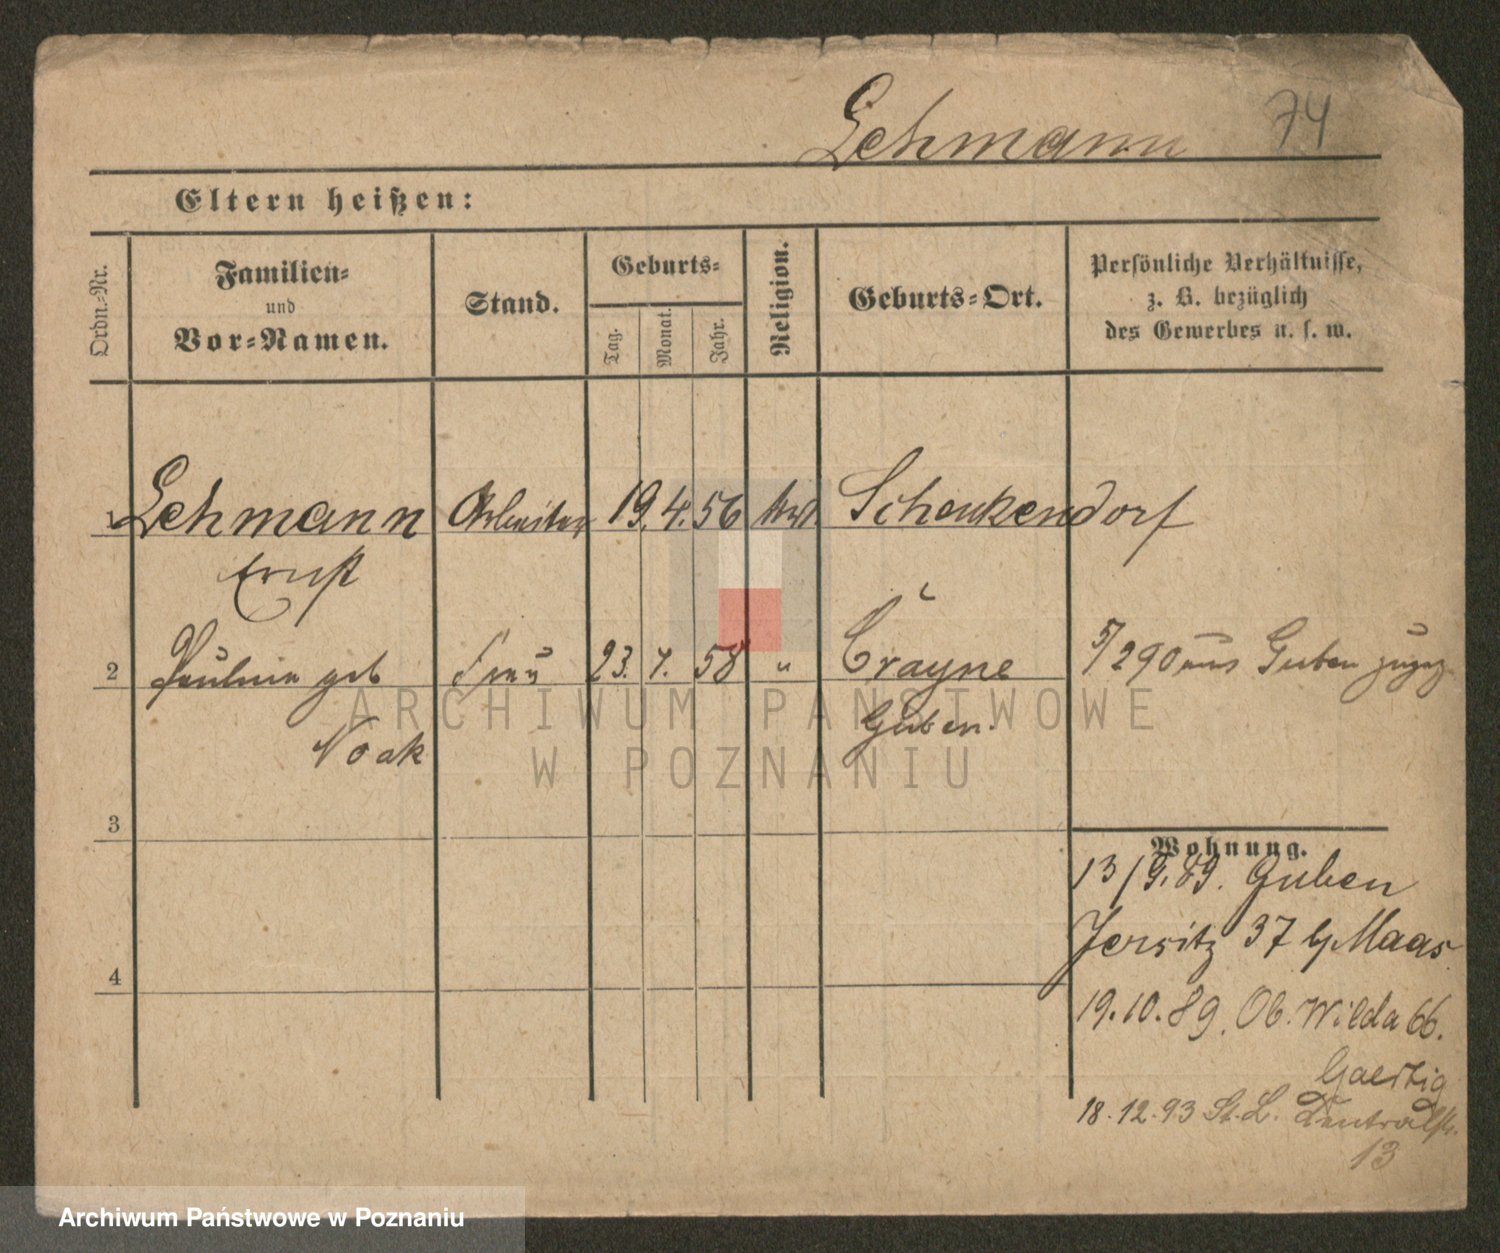 Lehmann 74
Eltern heißen:
Ordn.-Nr.
Familien-
und
Vor-Namen.
Stand.
Geburts-
Tag.
Monat.
Jahr.
Religion.
Geburts-Ort.
Persönliche Verhältnisse,
z. B. bezüglich
des Gewerbes u. s. w.
1 Lehmann Arbeiter 19. 4. 56 Schenkendorf
Ernst
2 Pauline geb Frau 23. 58 " Crayne 5/2 90 aus Guben zugez
Noak Guben.
ARCHIWUM PAŃSTWOWE
W POZNANIU
3
Wohnung.
13/9. 89. Guben
Jersitz 37 b/Maas
4
19. 10. 89. Ob. Wilda 66.
18. 12. 93 St. L.
13
Archiwum Państwowe w Poznaniu